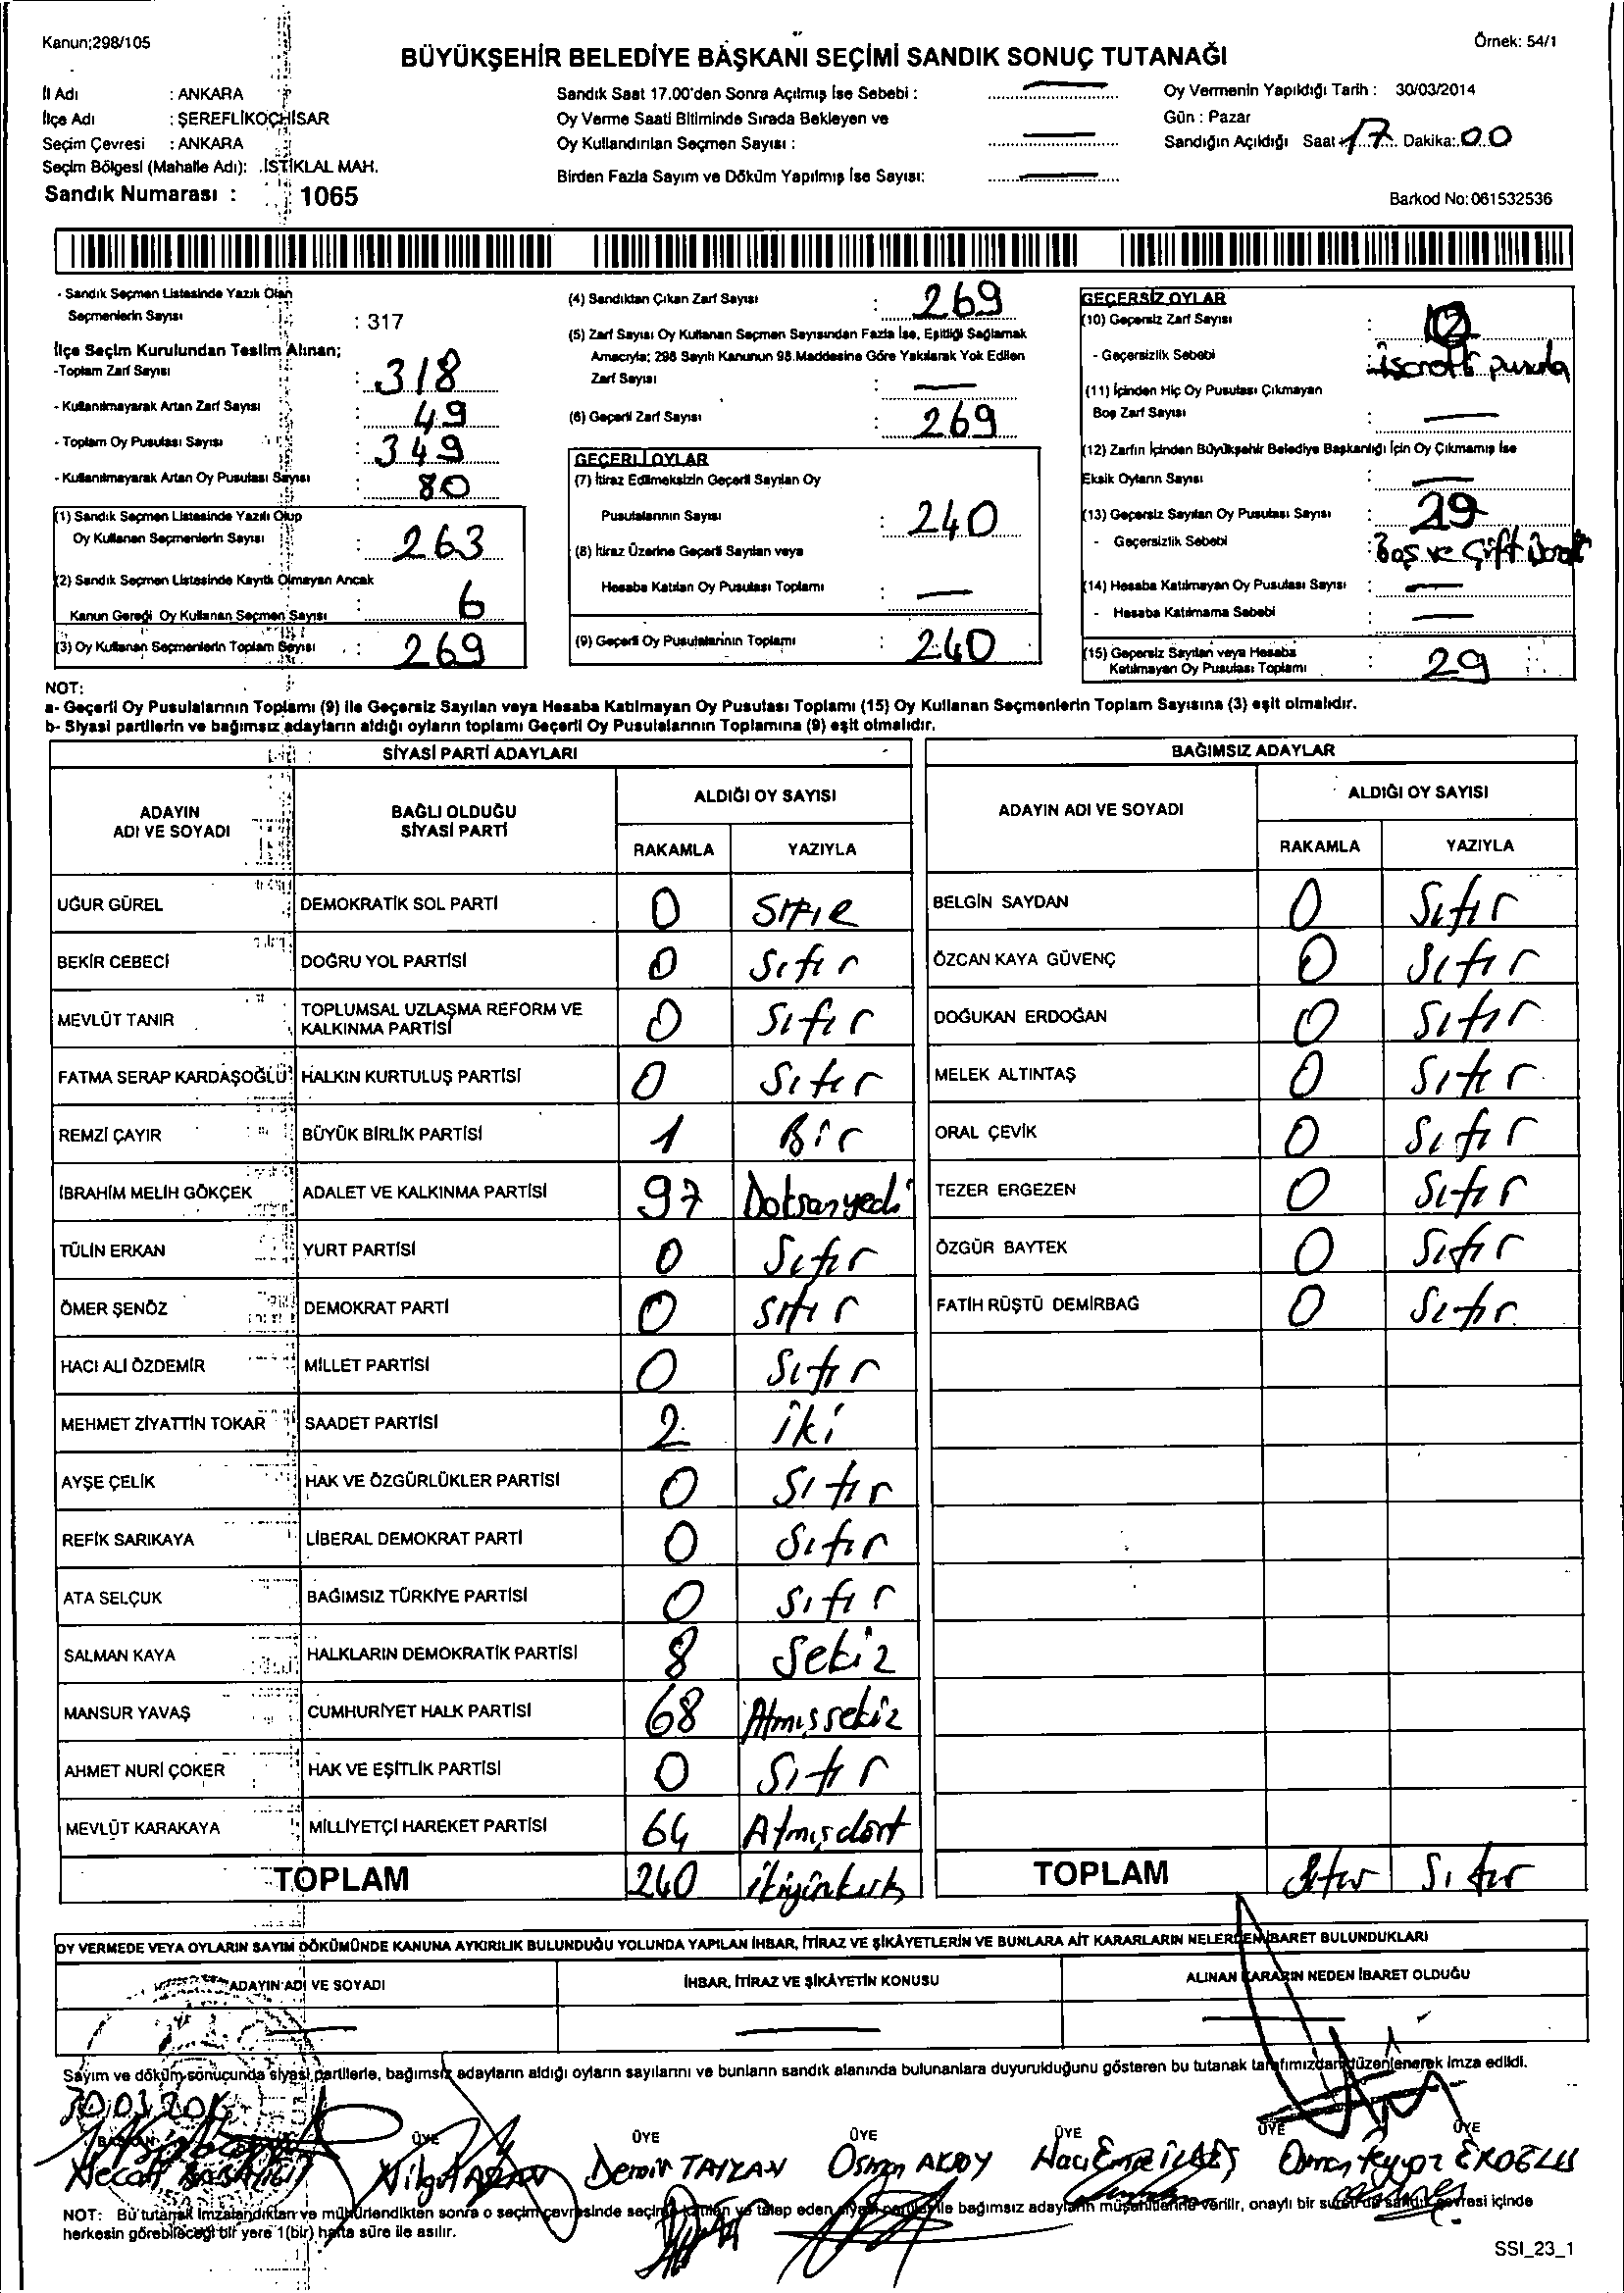 Kanun;298/105
Örnek: 54/1
BÜYÜKŞEHİR BELEDİYE BAŞKANI SEÇİMİ SANDIK SONUÇ TUTANAĞI
İl Adı : ANKARA
İlçe Adı : ŞEREFLİKOÇHİSAR
Seçim Çevresi : ANKARA
Seçim Bölgesi (Mahalle Adı): İSTİKLAL MAH.
Sandık Numarası : 1065
Sandık Saat 17.00'den Sonra Açılmış İse Sebebi :
Oy Verme Saati Bitiminde Sırada Bekleyen ve
Oy Kullandırılan Seçmen Sayısı :
Birden Fazla Sayım ve Döküm Yapılmış İse Sayısı:
Oy Vermenin Yapıldığı Tarih : 30/03/2014
Gün : Pazar
Sandığın Açıldığı Saat 17 Dakika: 00
Barkod No:061532536
- Sandık Seçmen Listesinde Yazılı Olan
Seçmenlerin Sayısı : 317
İlçe Seçim Kurulundan Teslim Alınan;
-Toplam Zarf Sayısı : 318
- Kullanılmayarak Artan Zarf Sayısı : 49
- Toplam Oy Pusulası Sayısı : 349
- Kullanılmayarak Artan Oy Pusulası Sayısı : 80
(1) Sandık Seçmen Listesinde Yazılı Olup
Oy Kullanan Seçmenlerin Sayısı : 263
(2) Sandık Seçmen Listesinde Kayıtlı Olmayan Ancak
Kanun Gereği Oy Kullanan Seçmen Sayısı : 6
(3) Oy Kullanan Seçmenlerin Toplam Sayısı : 269
(4) Sandıktan Çıkan Zarf Sayısı : 269
(5) Zarf Sayısı Oy Kullanan Seçmen Sayısından Fazla İse, Eşitliği Sağlamak
Amacıyla; 298 Sayılı Kanunun 98.Maddesine Göre Yakılarak Yok Edilen
Zarf Sayısı :
(6) Geçerli Zarf Sayısı : 269
GEÇERLİ OYLAR
(7) İtiraz Edilmeksizin Geçerli Sayılan Oy
Pusulalarının Sayısı : 240
(8) İtiraz Üzerine Geçerli Sayılan veya
Hesaba Katılan Oy Pusulası Toplamı :
(9) Geçerli Oy Pusulalarının Toplamı : 240
GEÇERSİZ OYLAR
(10) Geçersiz Zarf Sayısı :
- Geçersizlik Sebebi : pusula
(11) İçinden Hiç Oy Pusulası Çıkmayan
Boş Zarf Sayısı :
(12) Zarfın İçinden Büyükşehir Belediye Başkanlığı İçin Oy Çıkmamış İse
Eksik Oyların Sayısı :
(13) Geçersiz Sayılan Oy Pusulası Sayısı : 29
- Geçersizlik Sebebi : Boş ve Çift
(14) Hesaba Katılmayan Oy Pusulası Sayısı :
- Hesaba Katılmama Sebebi :
(15) Geçersiz Sayılan veya Hesaba
Katılmayan Oy Pusulası Toplamı : 29
NOT:
a- Geçerli Oy Pusulalarının Toplamı (9) ile Geçersiz Sayılan veya Hesaba Katılmayan Oy Pusulası Toplamı (15) Oy Kullanan Seçmenlerin Toplam Sayısına (3) eşit olmalıdır.
b- Siyasi partilerin ve bağımsız adayların aldığı oyların toplamı Geçerli Oy Pusulalarının Toplamına (9) eşit olmalıdır.
SİYASİ PARTİ ADAYLARI
ADAYIN ADI VE SOYADI
BAĞLI OLDUĞU SİYASİ PARTİ
ALDIĞI OY SAYISI
RAKAMLA YAZIYLA
UĞUR GÜREL DEMOKRATİK SOL PARTİ 0 SIFIR
BEKİR CEBECİ DOĞRU YOL PARTİSİ 0 Sıfır
MEVLÜT TANIR TOPLUMSAL UZLAŞMA REFORM VE KALKINMA PARTİSİ 0 Sıfır
FATMA SERAP KARDAŞOĞLU HALKIN KURTULUŞ PARTİSİ 0 Sıfır
REMZİ ÇAYIR BÜYÜK BİRLİK PARTİSİ 1 Bir
İBRAHİM MELİH GÖKÇEK ADALET VE KALKINMA PARTİSİ 97 Doksanyedi
TÜLİN ERKAN YURT PARTİSİ 0 Sıfır
ÖMER ŞENÖZ DEMOKRAT PARTİ 0 Sıfır
HACI ALİ ÖZDEMİR MİLLET PARTİSİ 0 Sıfır
MEHMET ZİYATTİN TOKAR SAADET PARTİSİ 2 iki
AYŞE ÇELİK HAK VE ÖZGÜRLÜKLER PARTİSİ 0 Sıfır
REFİK SARIKAYA LİBERAL DEMOKRAT PARTİ 0 Sıfır
ATA SELÇUK BAĞIMSIZ TÜRKİYE PARTİSİ 0 Sıfır
SALMAN KAYA HALKLARIN DEMOKRATİK PARTİSİ 8 Sekiz
MANSUR YAVAŞ CUMHURİYET HALK PARTİSİ 68 Atmışsekiz
AHMET NURİ ÇOKER HAK VE EŞİTLİK PARTİSİ 0 Sıfır
MEVLÜT KARAKAYA MİLLİYETÇİ HAREKET PARTİSİ 64 Atmışdört
TOPLAM 240 ikiyüzkırk
BAĞIMSIZ ADAYLAR
ADAYIN ADI VE SOYADI
ALDIĞI OY SAYISI
RAKAMLA YAZIYLA
BELGİN SAYDAN 0 Sıfır
ÖZCAN KAYA GÜVENÇ 0 Sıfır
DOĞUKAN ERDOĞAN 0 Sıfır
MELEK ALTINTAŞ 0 Sıfır
ORAL ÇEVİK 0 Sıfır
TEZER ERGEZEN 0 Sıfır
ÖZGÜR BAYTEK 0 Sıfır
FATİH RÜŞTÜ DEMİRBAĞ 0 Sıfır
TOPLAM Sıfır Sıfır
OY VERMEDE VEYA OYLARIN SAYIM DÖKÜMÜNDE KANUNA AYKIRILIK BULUNDUĞU YOLUNDA YAPILAN İHBAR, İTİRAZ VE ŞİKÂYETLERİN VE BUNLARA AİT KARARLARIN NELERDEN İBARET BULUNDUKLARI
ADAYIN ADI VE SOYADI
İHBAR, İTİRAZ VE ŞİKÂYETİN KONUSU
ALINAN KARARIN NEDEN İBARET OLDUĞU
Sayım ve döküm sonucunda siyasi partilerle, bağımsız adayların aldığı oyların sayılarını ve bunların sandık alanında bulunanlara duyurulduğunu gösteren bu tutanak tarafımızdan düzenlenerek imza edildi.
BAŞKAN ÜYE ÜYE ÜYE ÜYE ÜYE ÜYE
Necati Demir TAYLAN Osman AKSOY Osman EROĞLU
NOT: Bu tutanak imzalandıktan ve mühürlendikten sonra o seçim çevresinde seçime katılan ve talep eden siyasi partiler ile bağımsız adayların müşahitlerine verilir, onaylı bir sureti de sandık çevresi içinde
herkesin görebileceği bir yere 1(bir) hafta süre ile asılır.
SSI_23_1